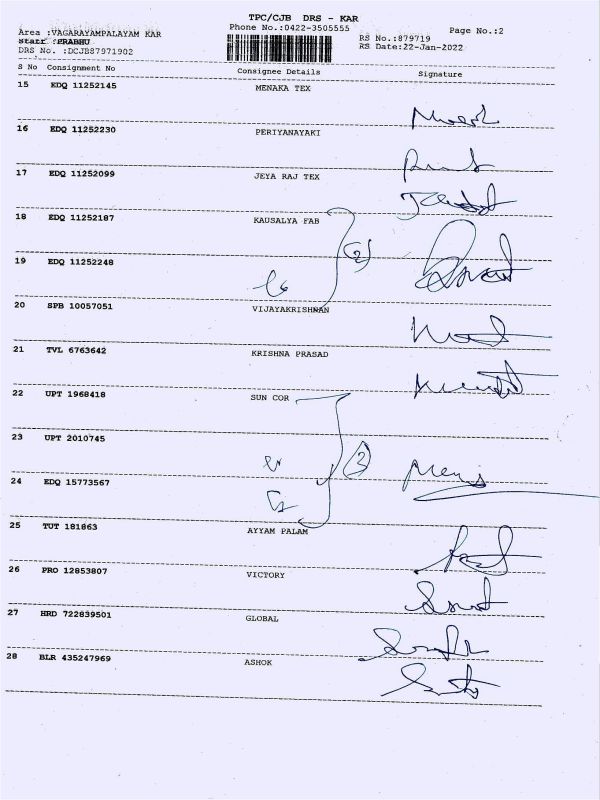 TPC/CJB DRS - KAR
Phone No.:0422-3505555
Page No.:2
Area :VAGARAYAMPALAYAM KAR
Staff :PRABHU
DRS No. :DCJB87971902
RS No.:879719
RS Date:22-Jan-2022
S No Consignment No Consignee Details Signature
15 EDQ 11252145 MENAKA TEX
16 EDQ 11252230 PERIYANAYAKI
17 EDQ 11252099 JEYA RAJ TEX
18 EDQ 11252187 KAUSALYA FAB
(2)
19 EDQ 11252248
20 SPB 10057051 VIJAYAKRISHNAN
21 TVL 6763642 KRISHNA PRASAD
22 UPT 1968418 SUN COR
23 UPT 2010745
24 EDQ 15773567
25 TUT 181863 AYYAM PALAM
26 PRO 12853807 VICTORY
27 HRD 722839501 GLOBAL
28 BLR 435247969 ASHOK